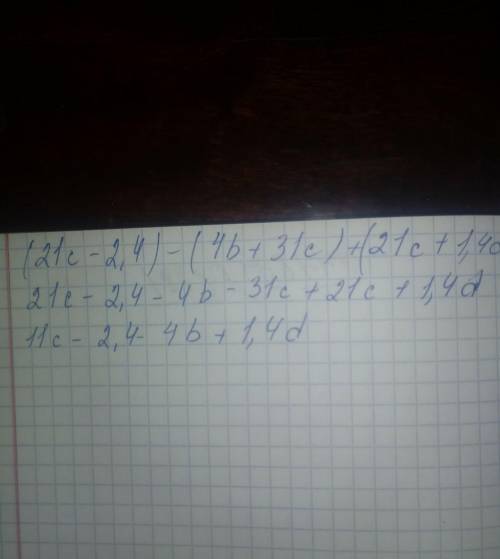 (21c - 2,4) - (4b + 31c) + (21c + 1,4d
21c - 2,4 - 4b - 31c + 21c + 1,4d
11c - 2,4 - 4b + 1,4d